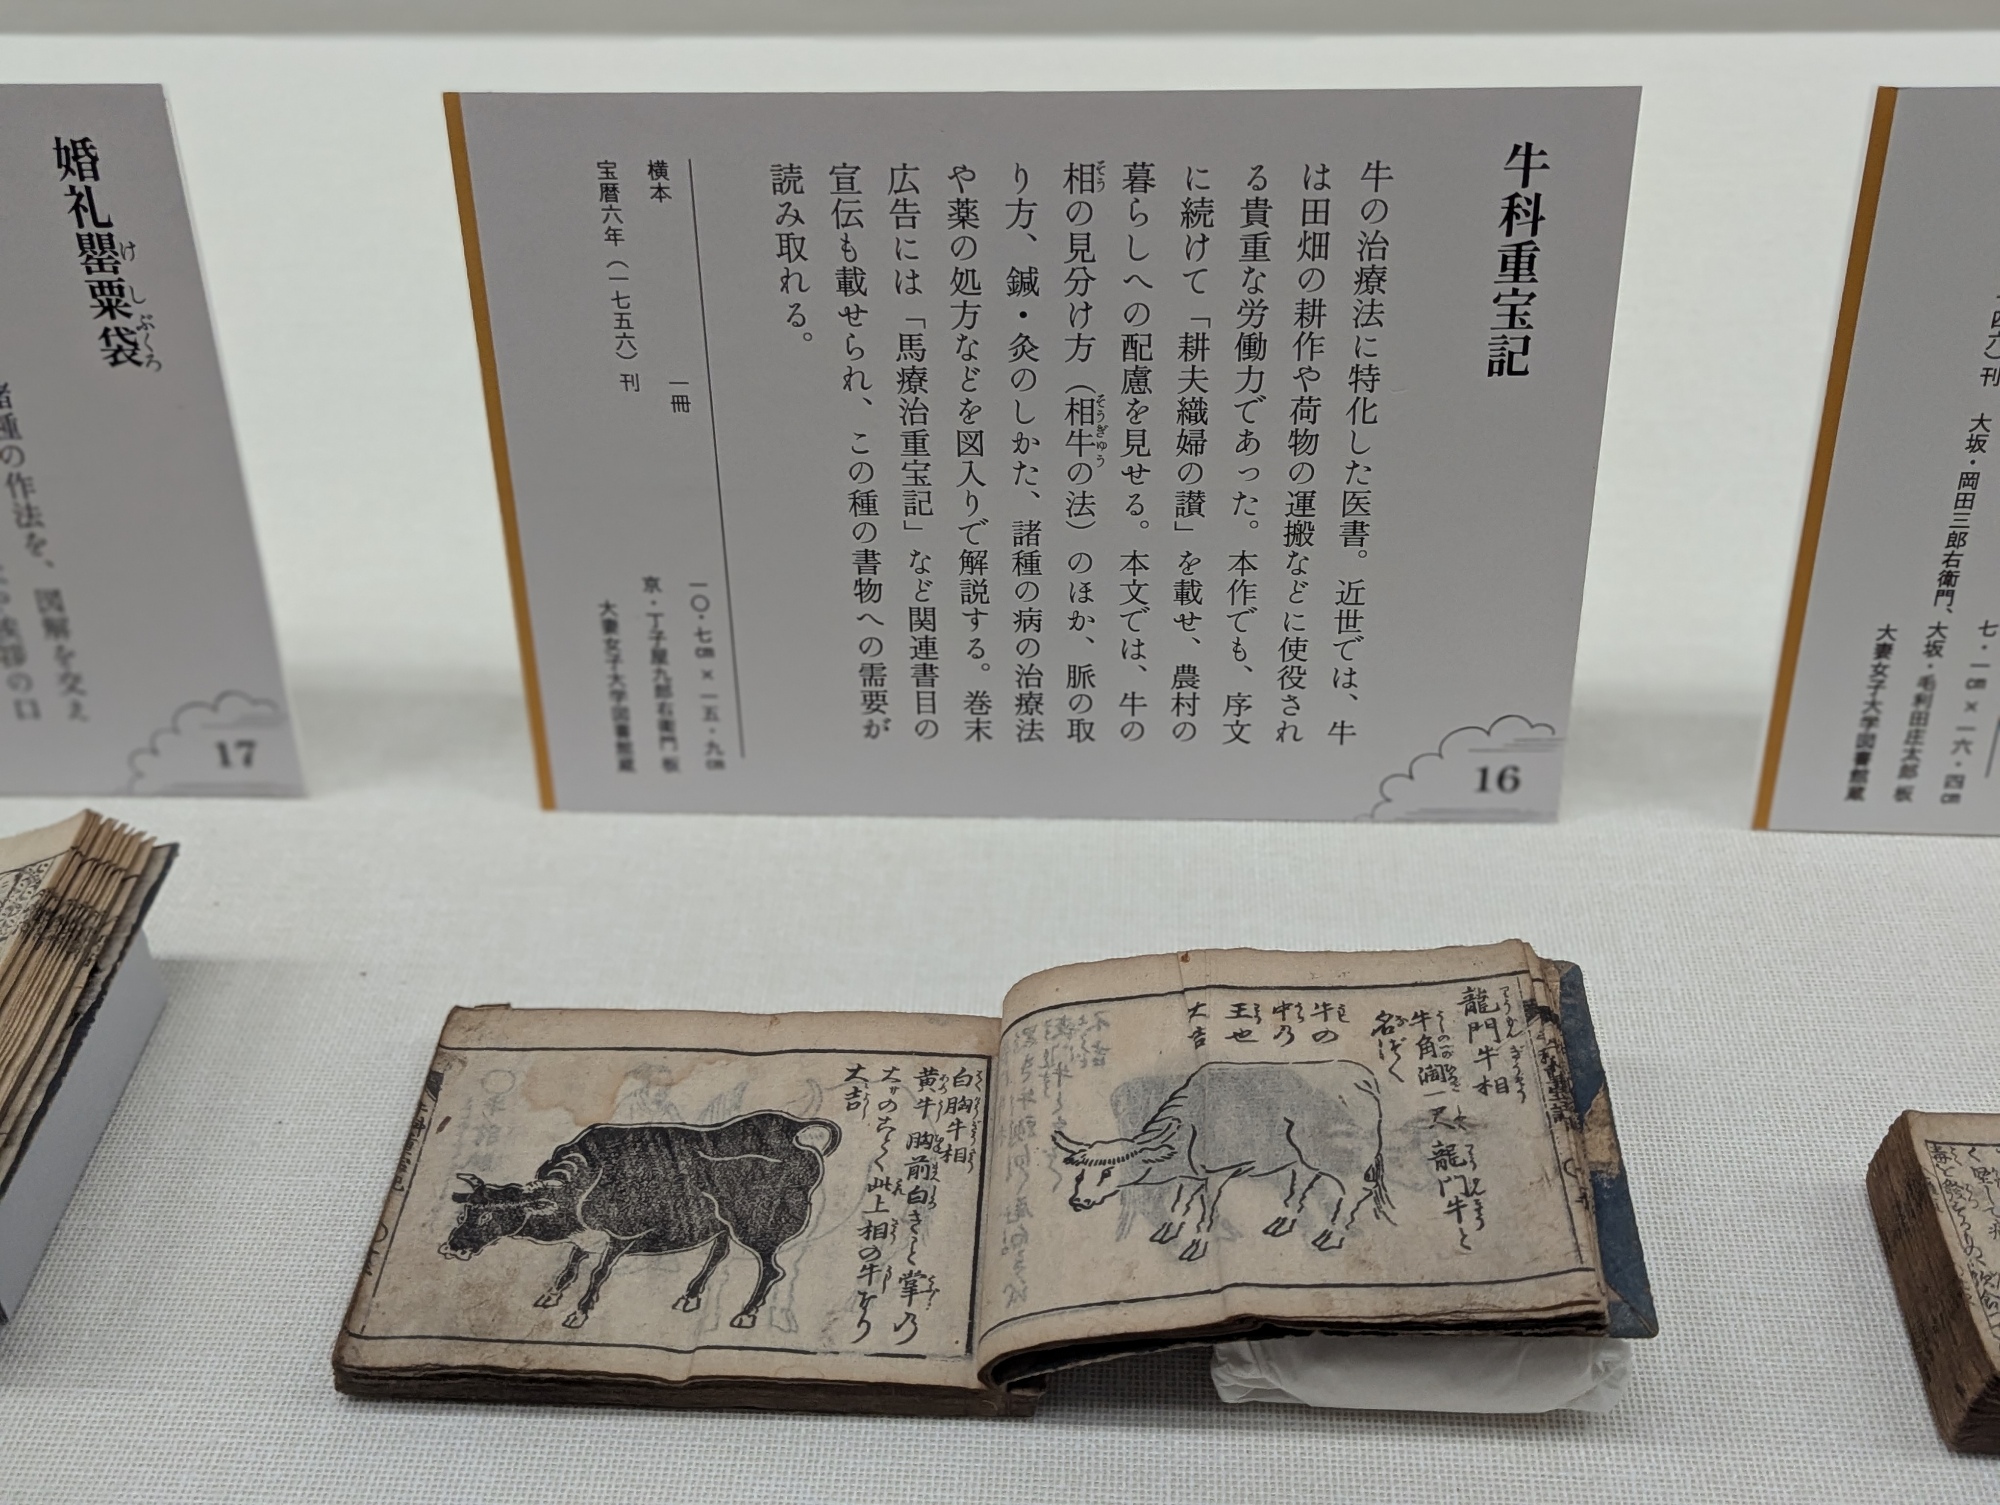 牛科重宝記
牛の治療法に特化した医書。近世では、牛
は田畑の耕作や荷物の運搬などに使役され
る貴重な労働力であった。本作でも、序文
に続けて「耕夫織婦の讃」を載せ、農村の
暮らしへの配慮を見せる。本文では、牛の
相の見分け方（相牛の法）のほか、脈の取
そう
そうぎゅう
り方、鍼・灸のしかた、諸種の病の治療法
や薬の処方などを図入りで解説する。巻末
広告には「馬療治重宝記」など関連書目の
宣伝も載せられ、この種の書物への需要が
読み取れる。
横本　一冊　一〇・七㎝×一五・九㎝
宝暦六年（一七五六）刊　京・丁子屋九郎右衛門 板
大妻女子大学図書館蔵
16
婚礼罌粟袋
けしぶくろ
諸種の作法を、図解を交え
17
四六）刊　大坂・岡田三郎右衛門、
七・一㎝×一六・四㎝
大坂・毛利田庄太郎 板
大妻女子大学図書館蔵
龍門牛相
牛角濶一尺龍門牛と
名づく
牛の
中乃
王也
大吉
白胸牛相
黄牛胸前白きこと掌乃
大サのごとく此上相の牛なり
大吉